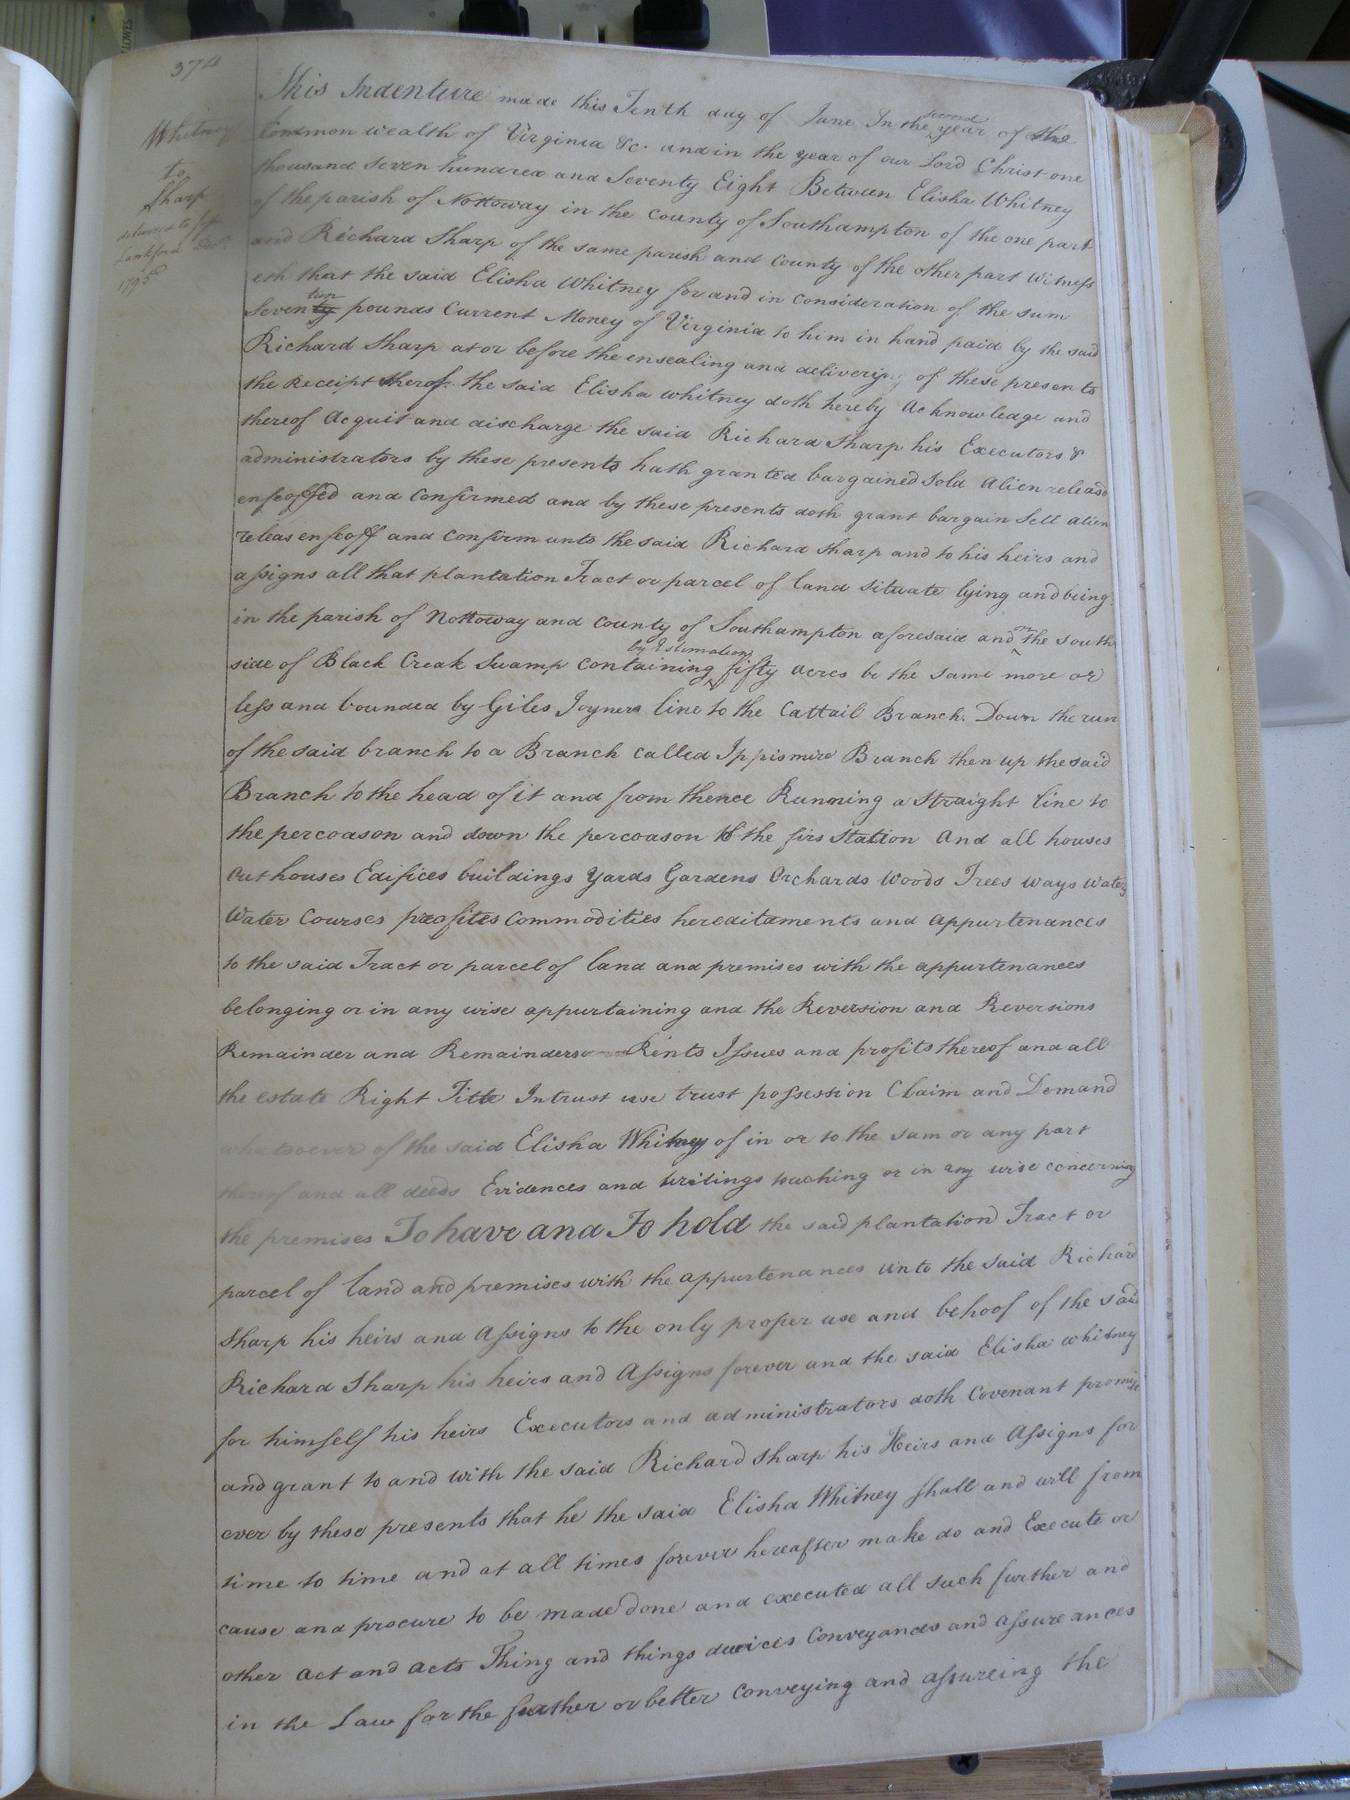 374
Whitney
to
Sharp
delivered to
Lankford
1795
This Indenture made this Tenth day of June In the second year of the
Common wealth of Virginia &c. and in the year of our Lord Christ one
thousand seven hundred and Seventy Eight Between Elisha Whitney
of the parish of Nottoway in the County of Southampton of the one part
and Richard Sharp of the same parish and County of the other part Witness
eth that the said Elisha Whitney for and in Consideration of the sum
Seventy ten pounds Current Money of Virginia to him in hand paid by the said
Richard Sharp at or before the ensealing and delivering of these presents
the Receipt thereof the said Elisha Whitney doth hereby Acknowledge and
thereof Acquit and discharge the said Richard Sharp his Executors &
administrators by these presents hath granted bargained Sold Alien releasd
enfeoffed and Confirmed and by these presents doth grant bargain Sell alien
releas enfeoff and Confirm unto the said Richard Sharp and to his heirs and
assigns all that plantation Tract or parcel of land Situate lying and being
in the parish of Nottoway and County of Southampton aforesaid and on the south
side of Black Creak Swamp Containing by Estimation fifty acres be the same more or
less and bounded by Giles Joyners line to the Cattail Branch. Down the run
of the said branch to a Branch called Ippismire Branch then up the said
Branch to the head of it and from thence Running a straight line to
the percoason and down the percoason to the firs Station And all houses
Out houses Edifices buildings Yards Gardens Orchards Woods Trees ways waters
Water Courses profites Commodities hereditaments and appurtenances
to the said Tract or parcel of land and premises with the appurtenances
belonging or in any wise appurtaining and the Reversion and Reversions
Remainder and Remainders Rents Issues and profits thereof and all
the estate Right Title Intrust use trust possession Claim and Demand
whatsoever of the said Elisha Whitney of in or to the sam or any part
thereof and all deeds Evidences and writings touching or in any wise concerning
the premises To have and To hold the said plantation Tract or
parcel of land and premises with the appurtenances unto the said Richard
Sharp his heirs and Assigns to the only proper use and behoof of the said
Richard Sharp his heirs and Assigns forever and the said Elisha Whitney
for himself his heirs Executors and administrators doth Covenant promise
and grant to and with the said Richard Sharp his Heirs and Assigns for
ever by these presents that he the said Elisha Whitney shall and will from
time to time and at all times forever hereafter make do and Execute or
cause and procure to be made done and executed all such further and
other act and acts Thing and things devices Conveyances and assureances
in the Law for the further or better Conveying and assureing the